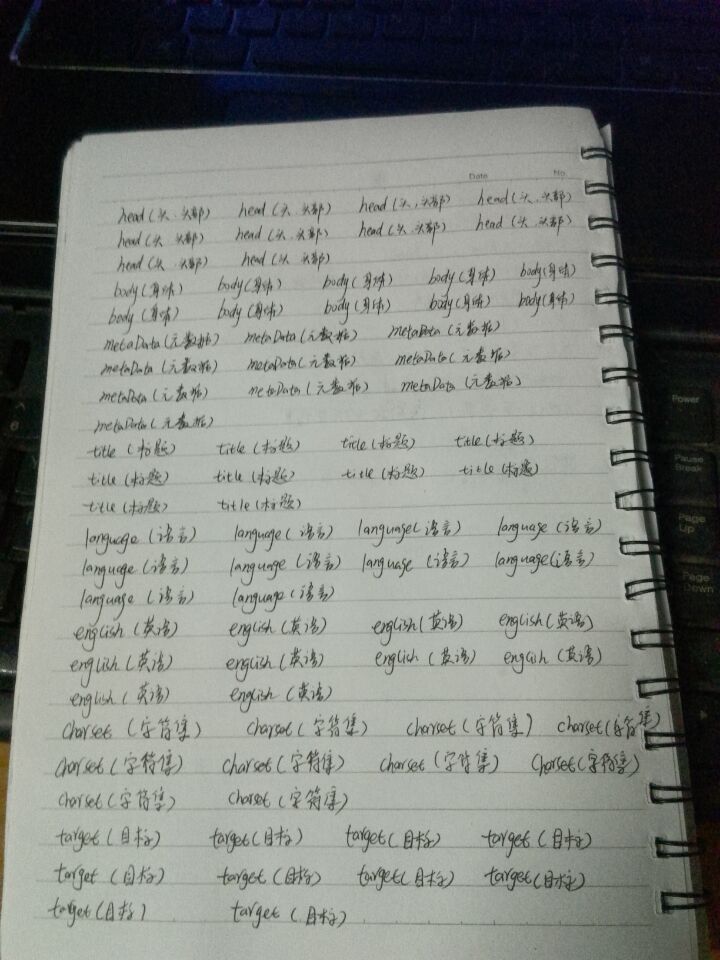 Date No.
head(头.头部) head(头.头部) head(头,头部) head(头.头部)
head(头.头部) head(头.头部) head(头.头部) head(头.头部)
head(头.头部) head(头.头部)
body(身体) body(身体) body(身体) body(身体) body(身体)
body(身体) body(身体) body(身体) body(身体) body(身体)
metaData(元数据) metaData(元数据) metaData(元数据)
metaData(元数据) metaData(元数据) metaData(元数据)
metaData(元数据) metaData(元数据) metaData(元数据)
metaData(元数据)
title(标题) title(标题) title(标题) title(标题)
title(标题) title(标题) title(标题) title(标题)
title(标题) title(标题)
language(语言) language(语言) language(语言) language(语言)
language(语言) language(语言) language(语言) language(语言)
language(语言) language(语言)
english(英语) english(英语) english(英语) english(英语)
english(英语) english(英语) english(英语) english(英语)
english(英语) english(英语)
charset(字符集) charset(字符集) charset(字符集) charset(字符集)
charset(字符集) charset(字符集) charset(字符集) charset(字符集)
charset(字符集) charset(字符集)
target(目标) target(目标) target(目标) target(目标)
target(目标) target(目标) target(目标) target(目标)
target(目标) target(目标)
Power
Pause
Break
Page
Up
Page
Down